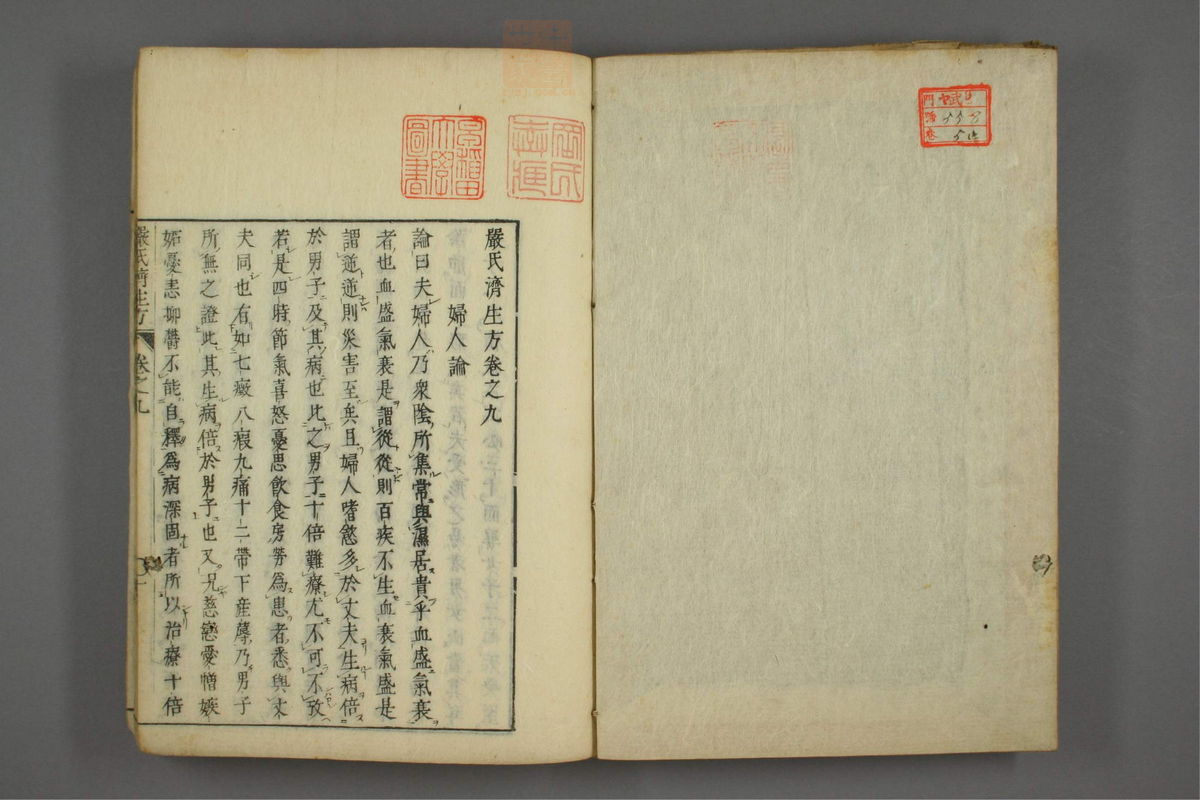 嚴氏濟生方卷之九
婦人論
論曰夫婦人乃衆陰所集常與濕居貴乎血盛氣衰
者也血盛氣衰是謂從從則百疾不生血衰氣盛是
謂逆逆則災害至矣且婦人嗜慾多於丈夫生病倍
於男子及其病也比之男子十倍難療尤不可不攷
若是四時節氣喜怒憂思飮食房勞為患者悉與丈
夫同也有如七癥八瘕九痛十二帶下産蓐乃男子
所無之證此其生病倍於男子也又况慈戀愛憎嫉
妬憂恚抑鬱不能自釋爲病深固者所以治療十倍
嚴氏濟生方 卷之九 一
圖書